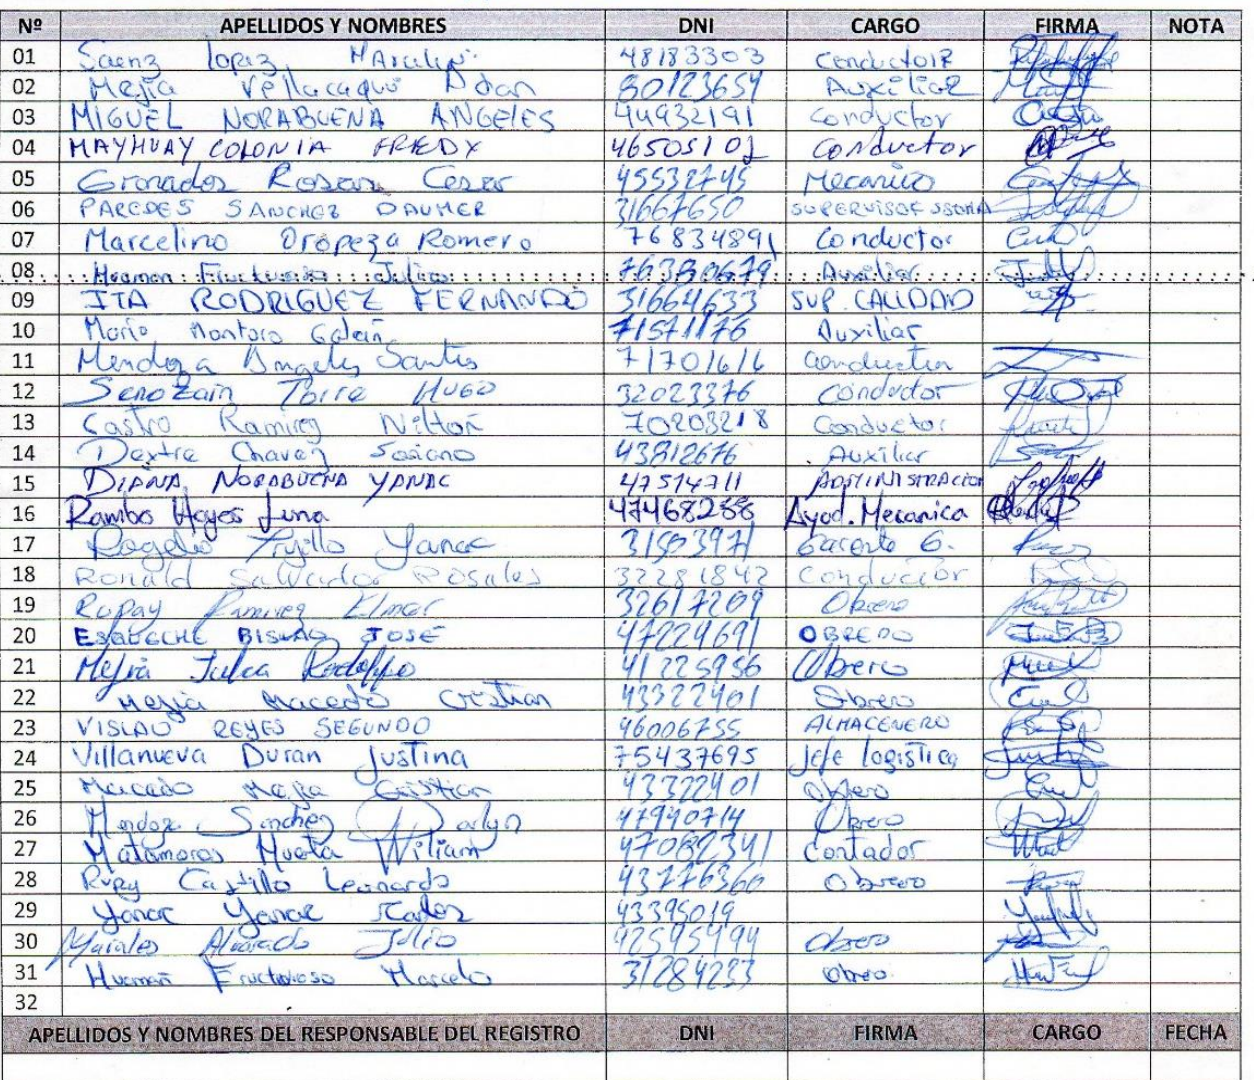 Nº APELLIDOS Y NOMBRES DNI CARGO FIRMA NOTA
01 Saenz Lopez 48183303 conductor
02 Mejia 80123654 Auxiliar
03 MIGUEL NORABUENA ANGELES 44932191 conductor
04 MAYHUAY COLONIA FREDY 46505102 conductor
05 Granados Rosas Cesar 45532745 Mecanico
06 PAREDES SANCHEZ DAUMER 31667650
07 Marcelino Oropeza Romero 76834891 Conductor
08 Huaman Julio Auxiliar
09 ITA RODRIGUEZ FERNANDO 31664633 SUP. CALIDAD
10 Mario Montoro 71571176 Auxiliar
11 Mendoza Angeles Santos 71701616
12 Senozain Torre HUGO 32023376 Conductor
13 Castro Ramirez 70203218 Conductor
14 Dextre Chavez 43812676 Auxiliar
15 DIANA NORABUENA YANAC 47514711
16 Rambo Hoyos Luna 47468288 Ayud. Mecanica
17 Rogelio Trujillo Yanac G.
18 Ronald Salvador Rosales 32281842 Conductor
19 Rupay Ramirez Elmer 32617209 Obrero
20 JOSE 47224691 OBRERO
21 Mejia Julca Rodolfo 41225956 Obrero
22 Mejia Macedo Cristian 43322401 Obrero
23 VISLAO REYES SEGUNDO 46006755 ALMACENERO
24 Villanueva Duran Justina 75437695 Jefe logistica
25 Mejia Cristian 43322401 Obrero
26 Mendoza Sanchez Darlyn 47940714 Obrero
27 Matamoros Hueta Wiliam 47082341 Contador
28 Rupay Castillo Leonardo 43776366 Obrero
29 Yanac Yanac 43395019
30 Morales Alvarado Julio 42595494 Obrero
31 Huamañ Fructuoso Marcelo 31284233 Obrero
32
APELLIDOS Y NOMBRES DEL RESPONSABLE DEL REGISTRO DNI FIRMA CARGO FECHA